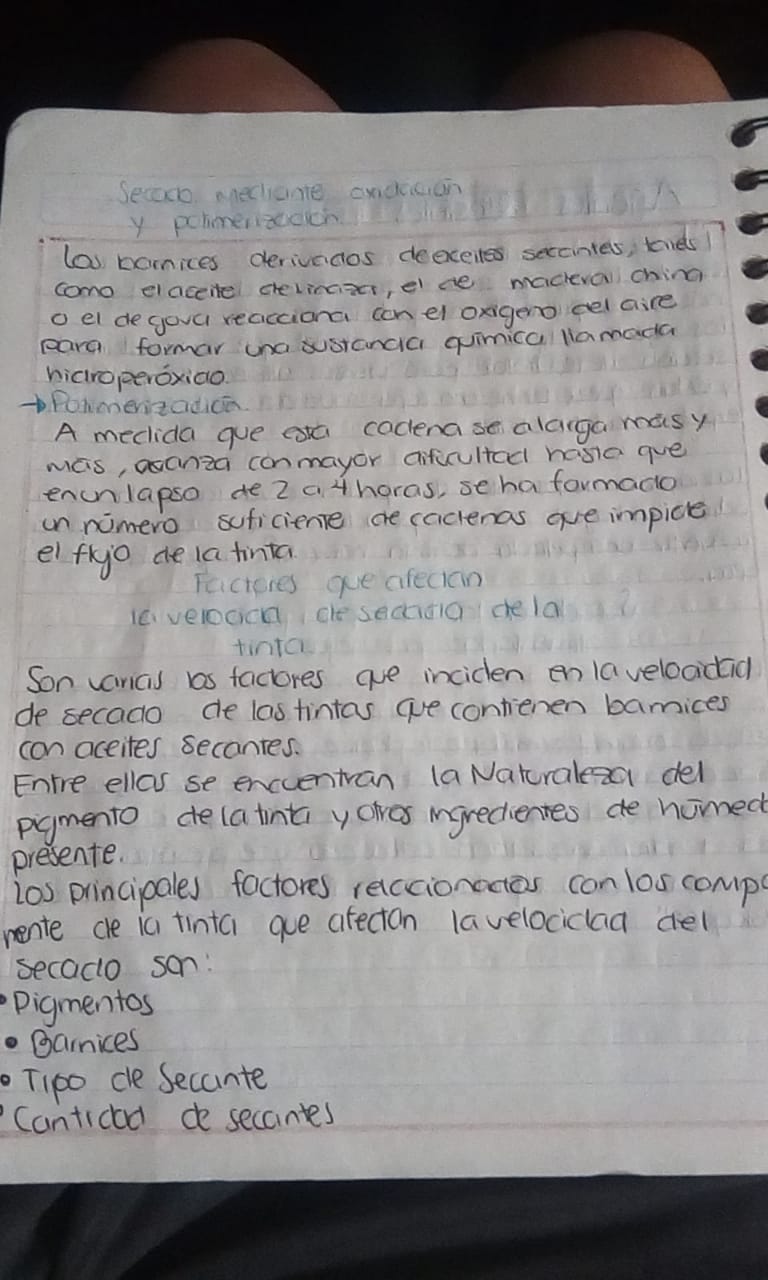 Secado mediante oxidación
y polimerización
Los barnices derivados de exeites secantes, tales
como el aceite de linaza, el de madera china
o el de gova reacciona con el oxigeno del aire
para formar una sustancia química llamada
hidroperóxido.
→ Polimerización.
A medida que esta cadena se alarga mas y
mas, avanza con mayor dificultad hasta que
en un lapso de 2 a 4 horas, se ha formado
un número suficiente de cadenas que impide
el flujo de la tinta.
Factores que afectan
la velocida de secadia de la
tinta
Son varias los factores que inciden en la velocidad
de secado de las tintas que contienen barnices
con aceites secantes.
Entre ellas se encuentran la Naturaleza del
pigmento de la tinta y otros ingredientes de húmed
presente.
Los principales factores relaccionados con los compo
nente de la tinta que afectan la velocidad del
secado son:
• Pigmentos
• Barnices
• Tipo de Secante
• Cantidad de secantes